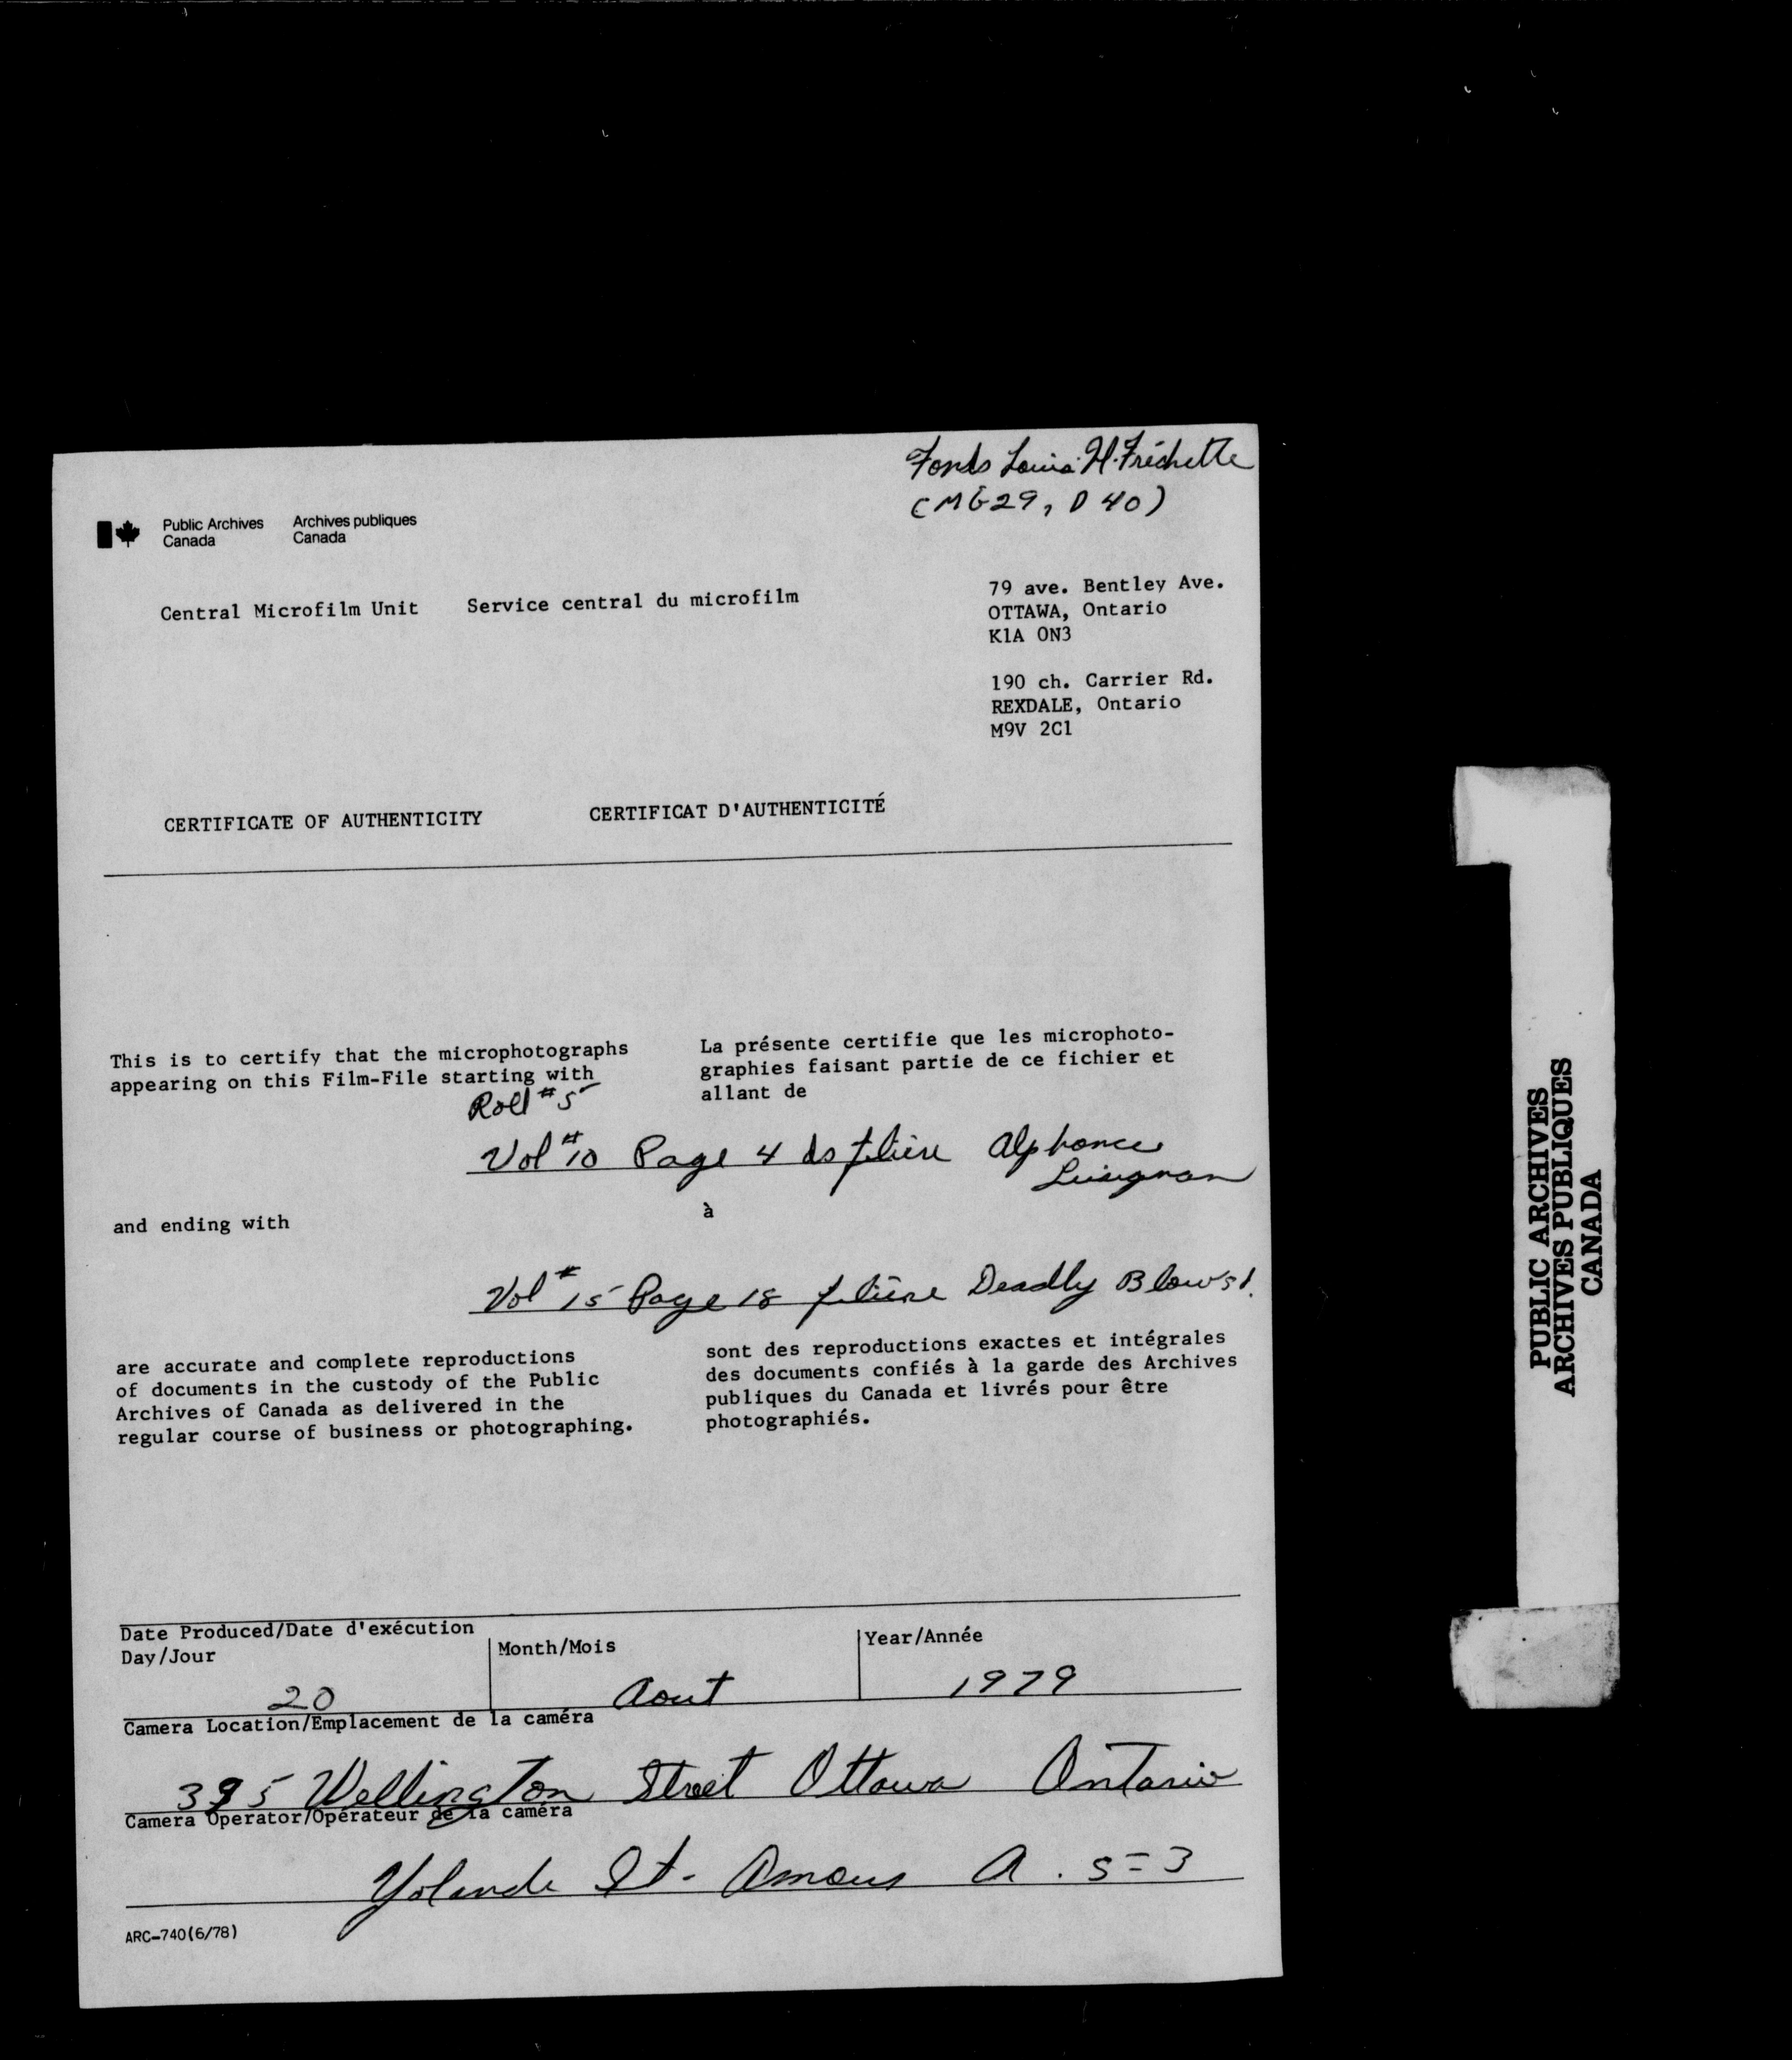 Fonds Louis H. Fréchette
(MG29, D 40)
Public Archives Canada
Archives publiques Canada
Central Microfilm Unit
Service central du microfilm
79 ave. Bentley Ave.
OTTAWA, Ontario
K1A ON3
190 ch. Carrier Rd.
REXDALE, Ontario
M9V 2C1
CERTIFICATE OF AUTHENTICITY
CERTIFICAT D'AUTHENTICITÉ
This is to certify that the microphotographs
appearing on this Film-File starting with
La présente certifie que les microphoto-
graphies faisant partie de ce fichier et
allant de
Roll # 5
Vol # 10 Page 4 ds filière Alphonce
Lusignan
and ending with
à
Vol # 15 Page 18 filière Deadly Blows!
are accurate and complete reproductions
of documents in the custody of the Public
Archives of Canada as delivered in the
regular course of business or photographing.
sont des reproductions exactes et intégrales
des documents confiés à la garde des Archives
publiques du Canada et livrés pour être
photographiés.
Date Produced/Date d'exécution
Day/Jour
Month/Mois
Year/Année
20
Aout
1979
Camera Location/Emplacement de la caméra
395 Wellington Street Ottawa Ontario
Camera Operator/Opérateur de la caméra
Yolande St. Amour A. S=3
ARC-740(6/78)
PUBLIC ARCHIVES
ARCHIVES PUBLIQUES
CANADA